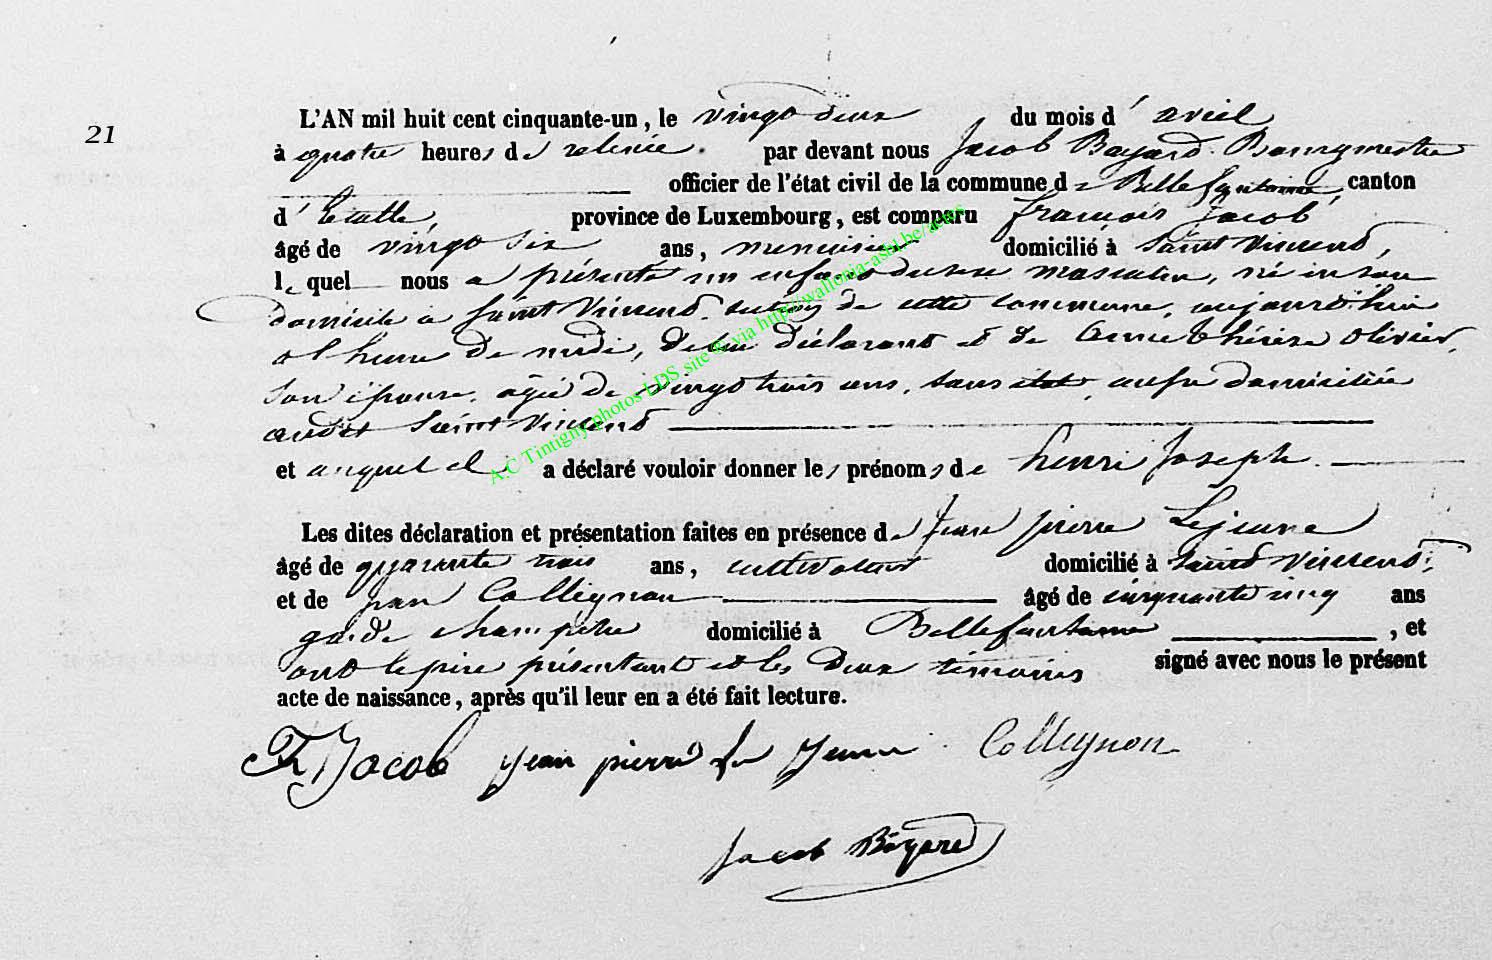 21
L'AN mil huit cent cinquante-un, le vingt deux du mois d'avril
à quatre heures de relevée. par devant nous Jacob Bayard Bourgmestre
officier de l'état civil de la commune de Bellefontaine, canton
d'Etalle, province de Luxembourg, est comparu françois Jacob,
âgé de vingt six ans, menuisier domicilié à Saint Vincent,
lequel nous a présenté un enfant du sexe masculin, né en son
domicile à Saint Vincent, section de cette commune, aujourd'hui
à l'heure de midi, de lui déclarant et de Anne thérèse Olivier,
son épouse, agée de vingt trois ans, sans état, aussi domiciliée
audit Saint Vincent
et auquel il a déclaré vouloir donner les prénoms de henri Joseph.
Les dites déclaration et présentation faites en présence de Jean pierre Lejeune
âgé de quarante trois ans, cultivateur domicilié à Saint Vincent,
et de jean Collignon âgé de cinquante cinq ans
garde champêtre domicilié à Bellefontaine, et
ont le père présentant et les deux témoins signé avec nous le présent
acte de naissance, après qu'il leur en a été fait lecture.
Fr Jacob jean pierre le Jeune Collignon
Jacob Bayard
A.C Tintigny photos LDS site © via http://wallonia-asbl.be/actes